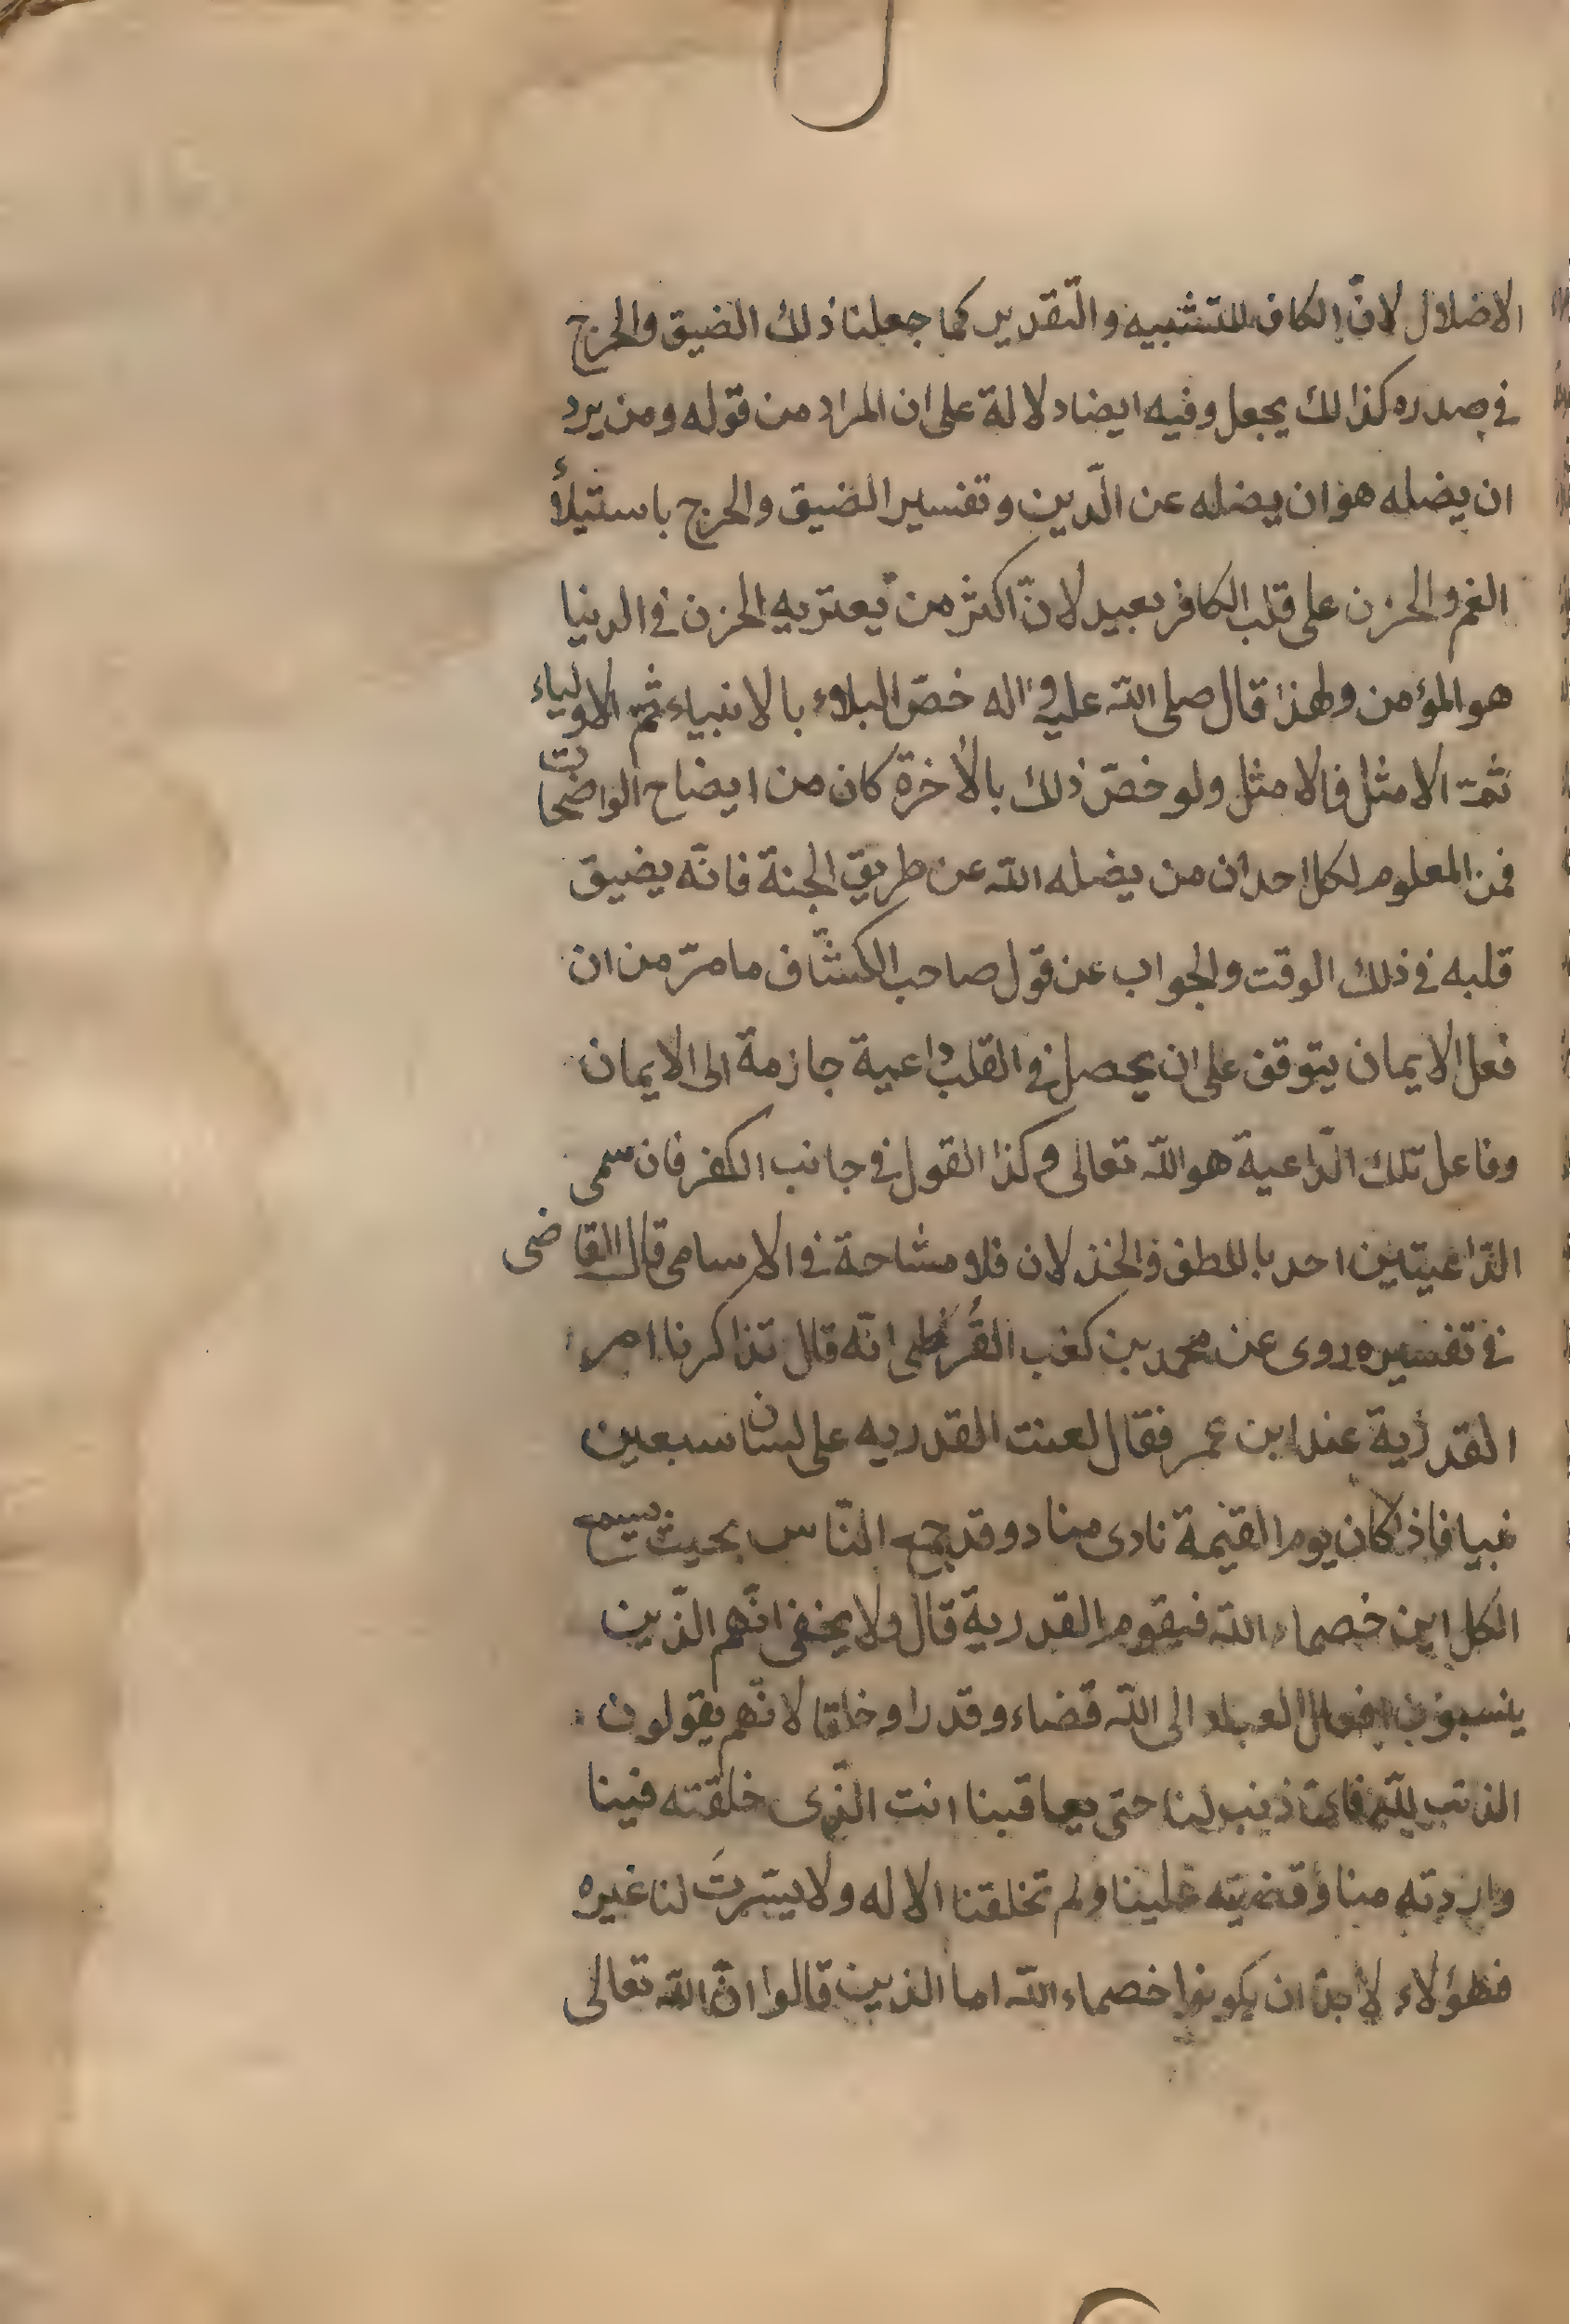 الاضلال لانّ الكاف للتشبيه والتّقدير كما جعلنا ذلك الضيق والحرج
في صدره كذالك يجعل وفيه ايضا دلالة على ان المراد من قوله ومن يرد
ان يضله هو ان يضله عن الدّين وتفسير الضيق والحرج باستيلأ
الغم والحزن على قلب الكافر بعيد لانّ اكثر من يعتريه الحزن في الدنيا
هو المؤمن ولهذا قال صلى الله عليه واله خصّ البلاء بالانبياء ثم الاولياء
ثمّ الامثل فالامثل ولو خصّ ذلك بالأخرة كان من ايضاح الواضحات
فمن المعلوم لكل احد ان من يضله الله عن طريق الجنة فانّه يضيق
قلبه في ذلك الوقت والجواب عن قول صاحب الكشّاف ما مرّ من ان
فعل الايمان يتوقف على ان يحصل في القلب داعية جازمة الى الايمان
وفاعل تلك الدّاعية هو اللّه تعالى وكذا القول في جانب الكفر فان سمى
الدّاعيتين احد باللطف والخذلان فلا مشاحة في الاسامى قال القاضى
في تفسيره روى عن محمد بن كعب القُرظى انّه قال تذاكرنا امر
القدرية عند ابن عمر فقال لعنت القدريه على لسان سبعين
نبيا فاذا كان يوم القيٰمة نادى مناد وقد جمع النّاس بحيث يسمع
الكل اين خصماء الله فيقوم القدرية قال ولا يخفى انّهم الذّين
ينسبون افعال العباد الى اللّه قضاء وقدرا وخلقا لانّهم يقولون
الذنب للّه فاىّ ذنب لنا حتى يعاقبنا انت الذّى خلقته فينا
واردته منا وقضيته علينا ولم تخلقنا الا له ولا يسّرتَ لنا غيره
فهؤلاء لا بدّ ان يكونوا خصماء اللّه اما الذين قالوا انّ اللّه تعالى